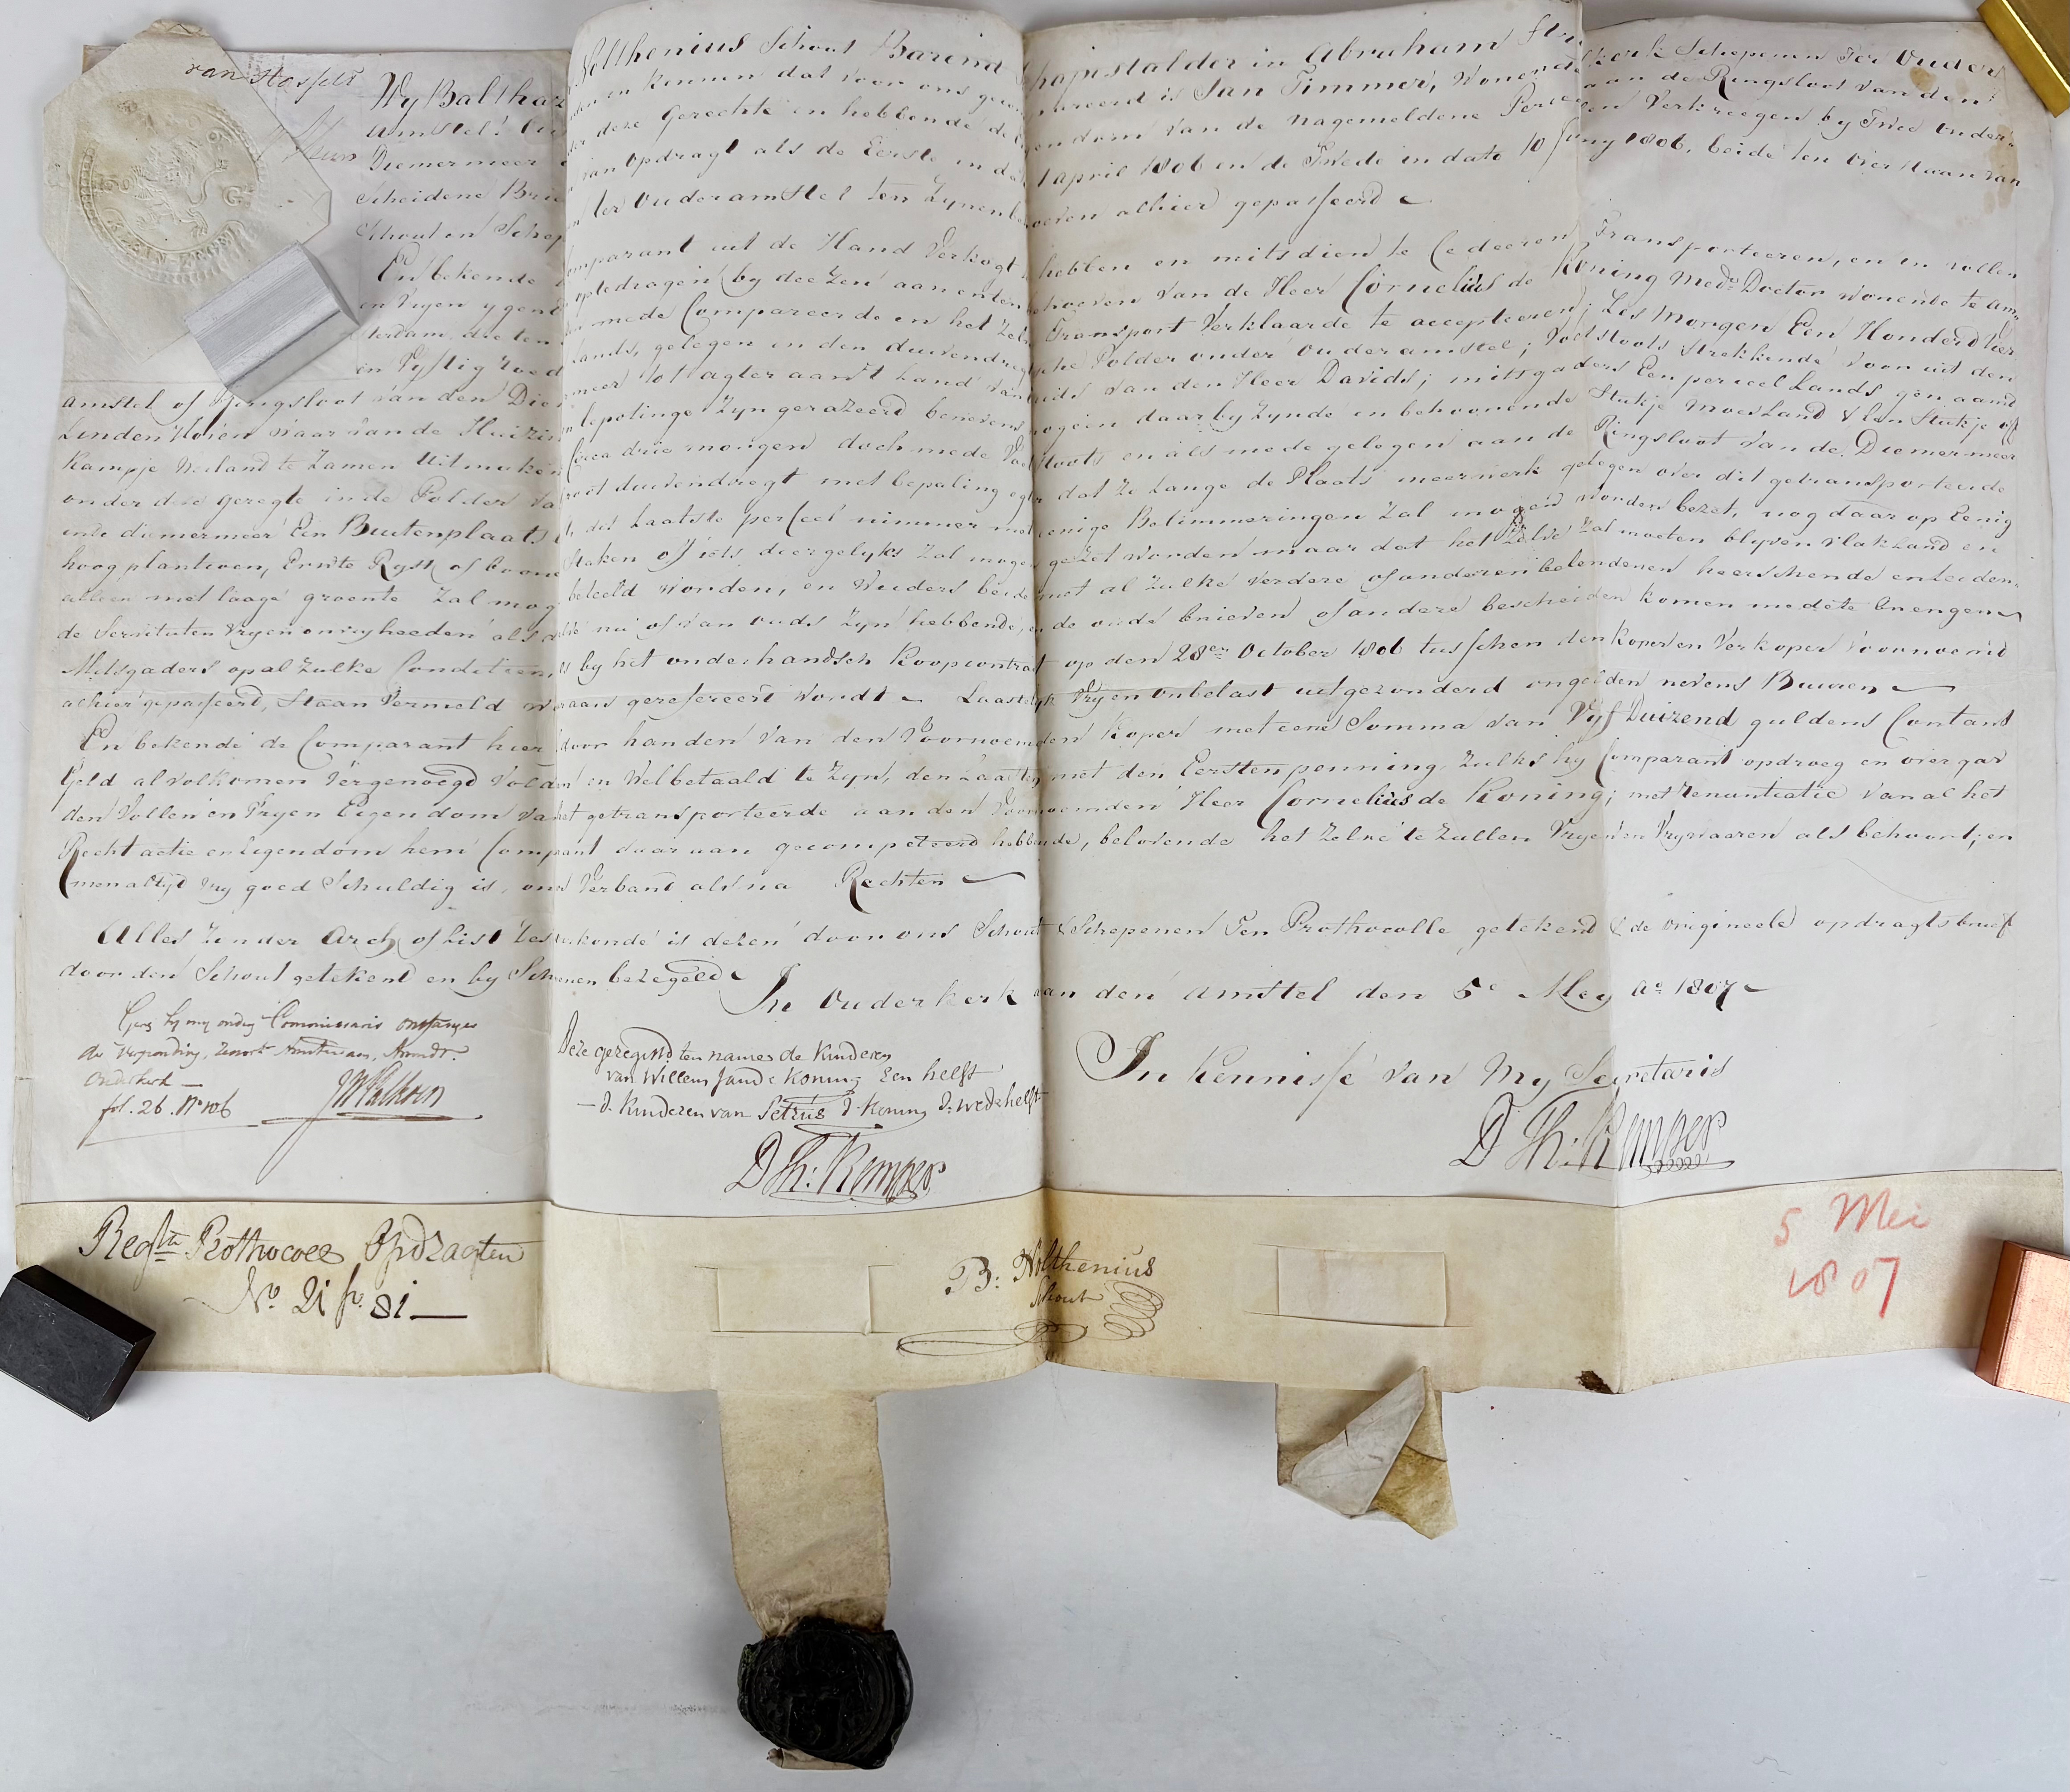 van Hasselt
Wy Balthaz Nolthenius Schout Barend Schapestalder in Abraham kerk Schepenen Ter Ouder
Amstel! en kennen dat voor ons gecompareerd is Jan Timmer, Wonende aan de Ringsloot van den
Diemermeer onder deze Gerechte en hebbende de Eigendom van de nagemeldene Perceelen Verkreegen by Twee onder
scheidene Brieven van Opdragt als de Eerste in dato 1 april 1806 en de Twede in dato 10 Juny 1806. beide ten Overstaan van
Schout en Schepenen ter Ouderamstel ten Zynen behoeven alhier gepasseerd
En bekende Comparant uit de Hand Verkogt te hebben en mitsdien te Cedeeren Transporteeren, en in vollen
en Vryen ygendom opte dragen by deezen aan en ten behoeven van de Heer Cornelius de Koning Med. Doctor wonende te Am
sterdam, die ten mede Compareerde en het Zelve Transport Verklaarde te accepteeren; Zes Morgen Een Honderd Vier
en Vyftig roed Lands, gelegen in den duivendregtsche Polder onder Ouderamstel; Voetstoots Strekkende Voor uit den
Amstel of Ringsloot van den Diemermeer tot agter aan't Land van Davids van den Heer Davids; mitsgaders Een perceel Lands genaamd
Linden Hoven waar van de Huizinge bepotinge Zyn gerazeerd benevens daar by Zynde en behoorende Stukje Moesland & Een Stukje of
Kampje Weiland te Zamen Uitmakende Circa drie morgen doch mede Voetstoots en als mede gelegen aan de Ringsloot van de Diemermeer
onder deze geregte in de Polder van groot duivendregt met bepaling egter dat Zo lange de Plaats meerwerk gelegen over dit getransporteerde
in de diemermeer Een Buitenplaats is, dit Laatste perceel nimmer met eenige Betimmeringen Zal mogen worden bezet, nog daar op Eenig
hoog plantzoen, Erwte Ryst of boone Staken of iets diergelyks Zal mogen gezet worden maar dat het Zelve Zal moeten blyven vlak Land en
alleen met laage groente Zal mogen beteeld Worden, en Wieders beide met al Zulke Verdere of anderen belendenen heerschende en leiden
de Servituten Vryen onvryheeden als dezelve nu of van ouds Zyn hebbende, en de oude brieven of andere bescheiden komen mede te brengen
Mitsgaders op al Zulke Conditien als by het onderhandsch Koopcontract op den 28en October 1806 tusschen den Koper en Verkoper Voornoemd
alhier gepasseerd, Staan Vermeld waaraan gerefereert Wordt Laastelyk Vry en onbelast uitgezonderd ongelden nevens Buuren
En bekende de Comparant hier voor handen van den Voornoemden Koper met eene Somma van Vyf Duizend guldens Contant
Geld al volkomen Vergenoegd Voldaan en Wel betaald te Zyn, den Laasten met den Eersten penning, Zulks hy Comparant opdroeg en overgav
den Vollen en Vryen Eigendom van het getransporteerde aan den Voornoemden Heer Cornelius de Koning; met renuntiatie van al het
Recht actie en Eigendom hem Comparant daar aan gecompeteerd hebbende, belovende het Zelve te Zullen Vryen en Vrywaaren als behoort; en
men altyd Vry goed Schuldig is, onder Verband als na Rechten
Alles Zonder Arch of List Ten oirkonde is dezen door ons Schout & Schepenen Ten Prothocolle getekend & de origineele opdragtsbrief
door den Schout getekend en by Schepenen bezegeld
In Ouderkerk aan den Amstel den 5e Mey Ao 1807
Gereg by my onderg Commissaris ontfanger
der Verponding, Amsterdam, Arrondt.
Ouderkerk
fol. 26. No 106
Deze geregistd ten names de Kinderen
van Willem Jan de Koning Een helft
d. Kinderen van Petrus d. Koning d. wedrhelft
D Th: Kemper
In Kennisse van My Secretaris
D Th: Kemper
Regte Prothocol Opdragten
No. 21 fo. 81
B: Nolthenius
Schout
5 Mei
1807